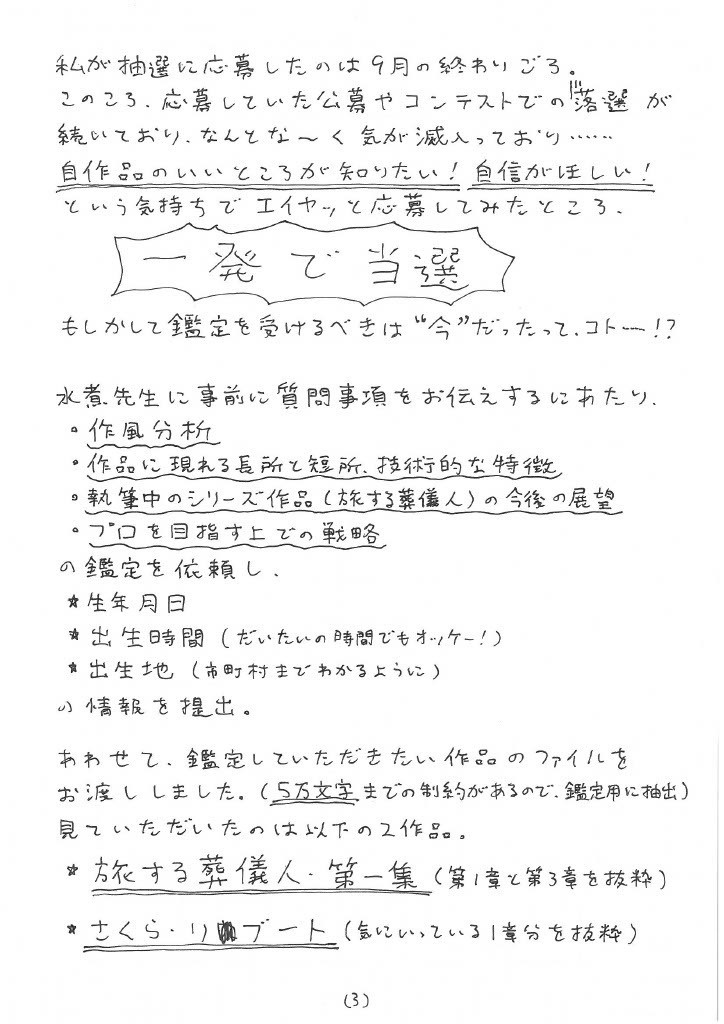 私が抽選に応募したのは9月の終わりごろ。
このころ、応募していた公募やコンテストでの落選が
続いており、なんとな〜く気が滅入っており……
自作品のいいところが知りたい！自信がほしい！
という気持ちでエイヤッと応募してみたところ、
一発で当選
もしかして鑑定を受けるべきは“今”だったって、コトー!?
水煮先生に事前に質問事項をお伝えするにあたり、
・作風分析
・作品に現れる長所と短所、技術的な特徴
・執筆中のシリーズ作品(旅する葬儀人)の今後の展望
・プロを目指す上での戦略
の鑑定を依頼し、
★生年月日
★出生時間(だいたいの時間でもオッケー!)
★出生地(市町村までわかるように)
の情報を提出。
あわせて、鑑定していただきたい作品のファイルを
お渡ししました。(5万文字までの制約があるので、鑑定用に抽出)
見ていただいたのは以下の2作品。
★旅する葬儀人・第一集(第1章と第3章を抜粋)
★さくら・リブート(気にいっている1章分を抜粋)
(3)